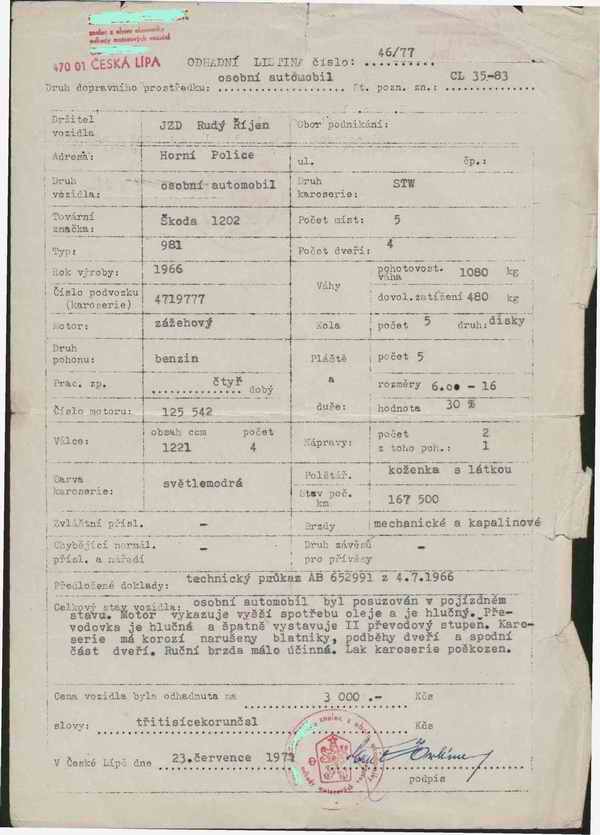 znalec z oboru ekonomiky
odhady motorových vozidel
470 01 ČESKÁ LÍPA
ODHADNÍ LISTINA číslo: 46/77
Druh dopravního prostředku: osobní automobil St. pozn. zn.: CL 35-83
Držitel vozidla JZD Rudý Říjen Obor podnikání:
Adresa: Horní Police ul. čp.:
Druh vozidla: osobní automobil Druh karoserie: STW
Tovární značka: Škoda 1202 Počet míst: 5
Typ: 981 Počet dveří: 4
Rok výroby: 1966 Váhy pohotovost. váha 1080 kg
Číslo podvozku (karoserie) 4719777 dovol.zatížení 480 kg
Motor: zážehový Kola počet 5 druh: disky
Druh pohonu: benzin Pláště počet 5
Prac. zp. čtyř dobý a rozměry 6.00 - 16
Číslo motoru: 125 542 duše: hodnota 30 %
Válce: obsah ccm 1221 počet 4 Nápravy: počet 2
z toho poh.: 1
Barva karoserie: světlemodrá Polštář. koženka s látkou
Stav poč. km 167 500
Zvláštní přísl. - Brzdy mechanické a kapalinové
Chybějící normál. přísl. a nářadí - Druh závěsů pro přívěsy -
Předložené doklady: technický průkaz AB 652991 z 4.7.1966
Celkový stav vozidla: osobní automobil byl posuzován v pojízdném
stavu. Motor vykazuje vyěší spotřebu oleje a je hlučný. Pře-
vodovka je hlučná a špatně vystavuje II převodový stupen. Karo-
serie má korozí narušeny blatniky, podběhy dveří a spodní
část dveří. Ruční brzda málo účinná. Lak karoserie poěkozen.
Cena vozidla byla odhadnuta na 3 000 .- Kčs
slovy: třitisícekorunčsl Kčs
V České Lípě dne 23.července 1977
podpis